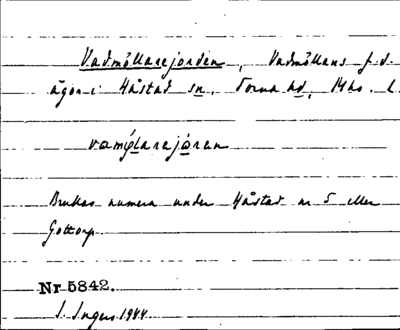 Vadmöllarejorden, Vadmöllans f.d.
ägor i Håstad sn, Torna hd, Mho. L.
vamýlarejóren
Brukas numera under Håstad nr 5 eller
Gottorp.
Nr 5842.
I. Ingers 1944